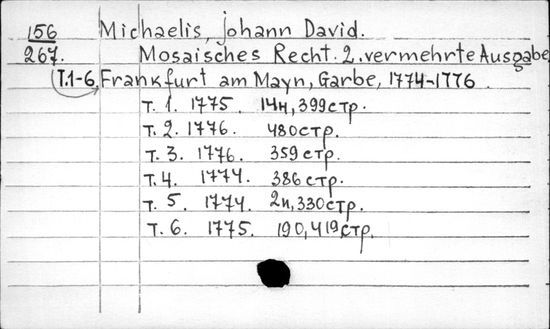 156 Michaelis, Johann David.
267. Mosaisches Recht. 2. vermehrte Ausgabe,
(Т.1-6. Frankfurt am Mayn, Garbe, 1774-1776
т. 1. 1775. 14н, 399стр.
т. 2. 1776. 480стр.
т. 3. 1776. 359стр.
т. 4. 1777. 386стр.
т. 5. 1774. 2н, 330стр.
т. 6. 1775. 190, 419стр.